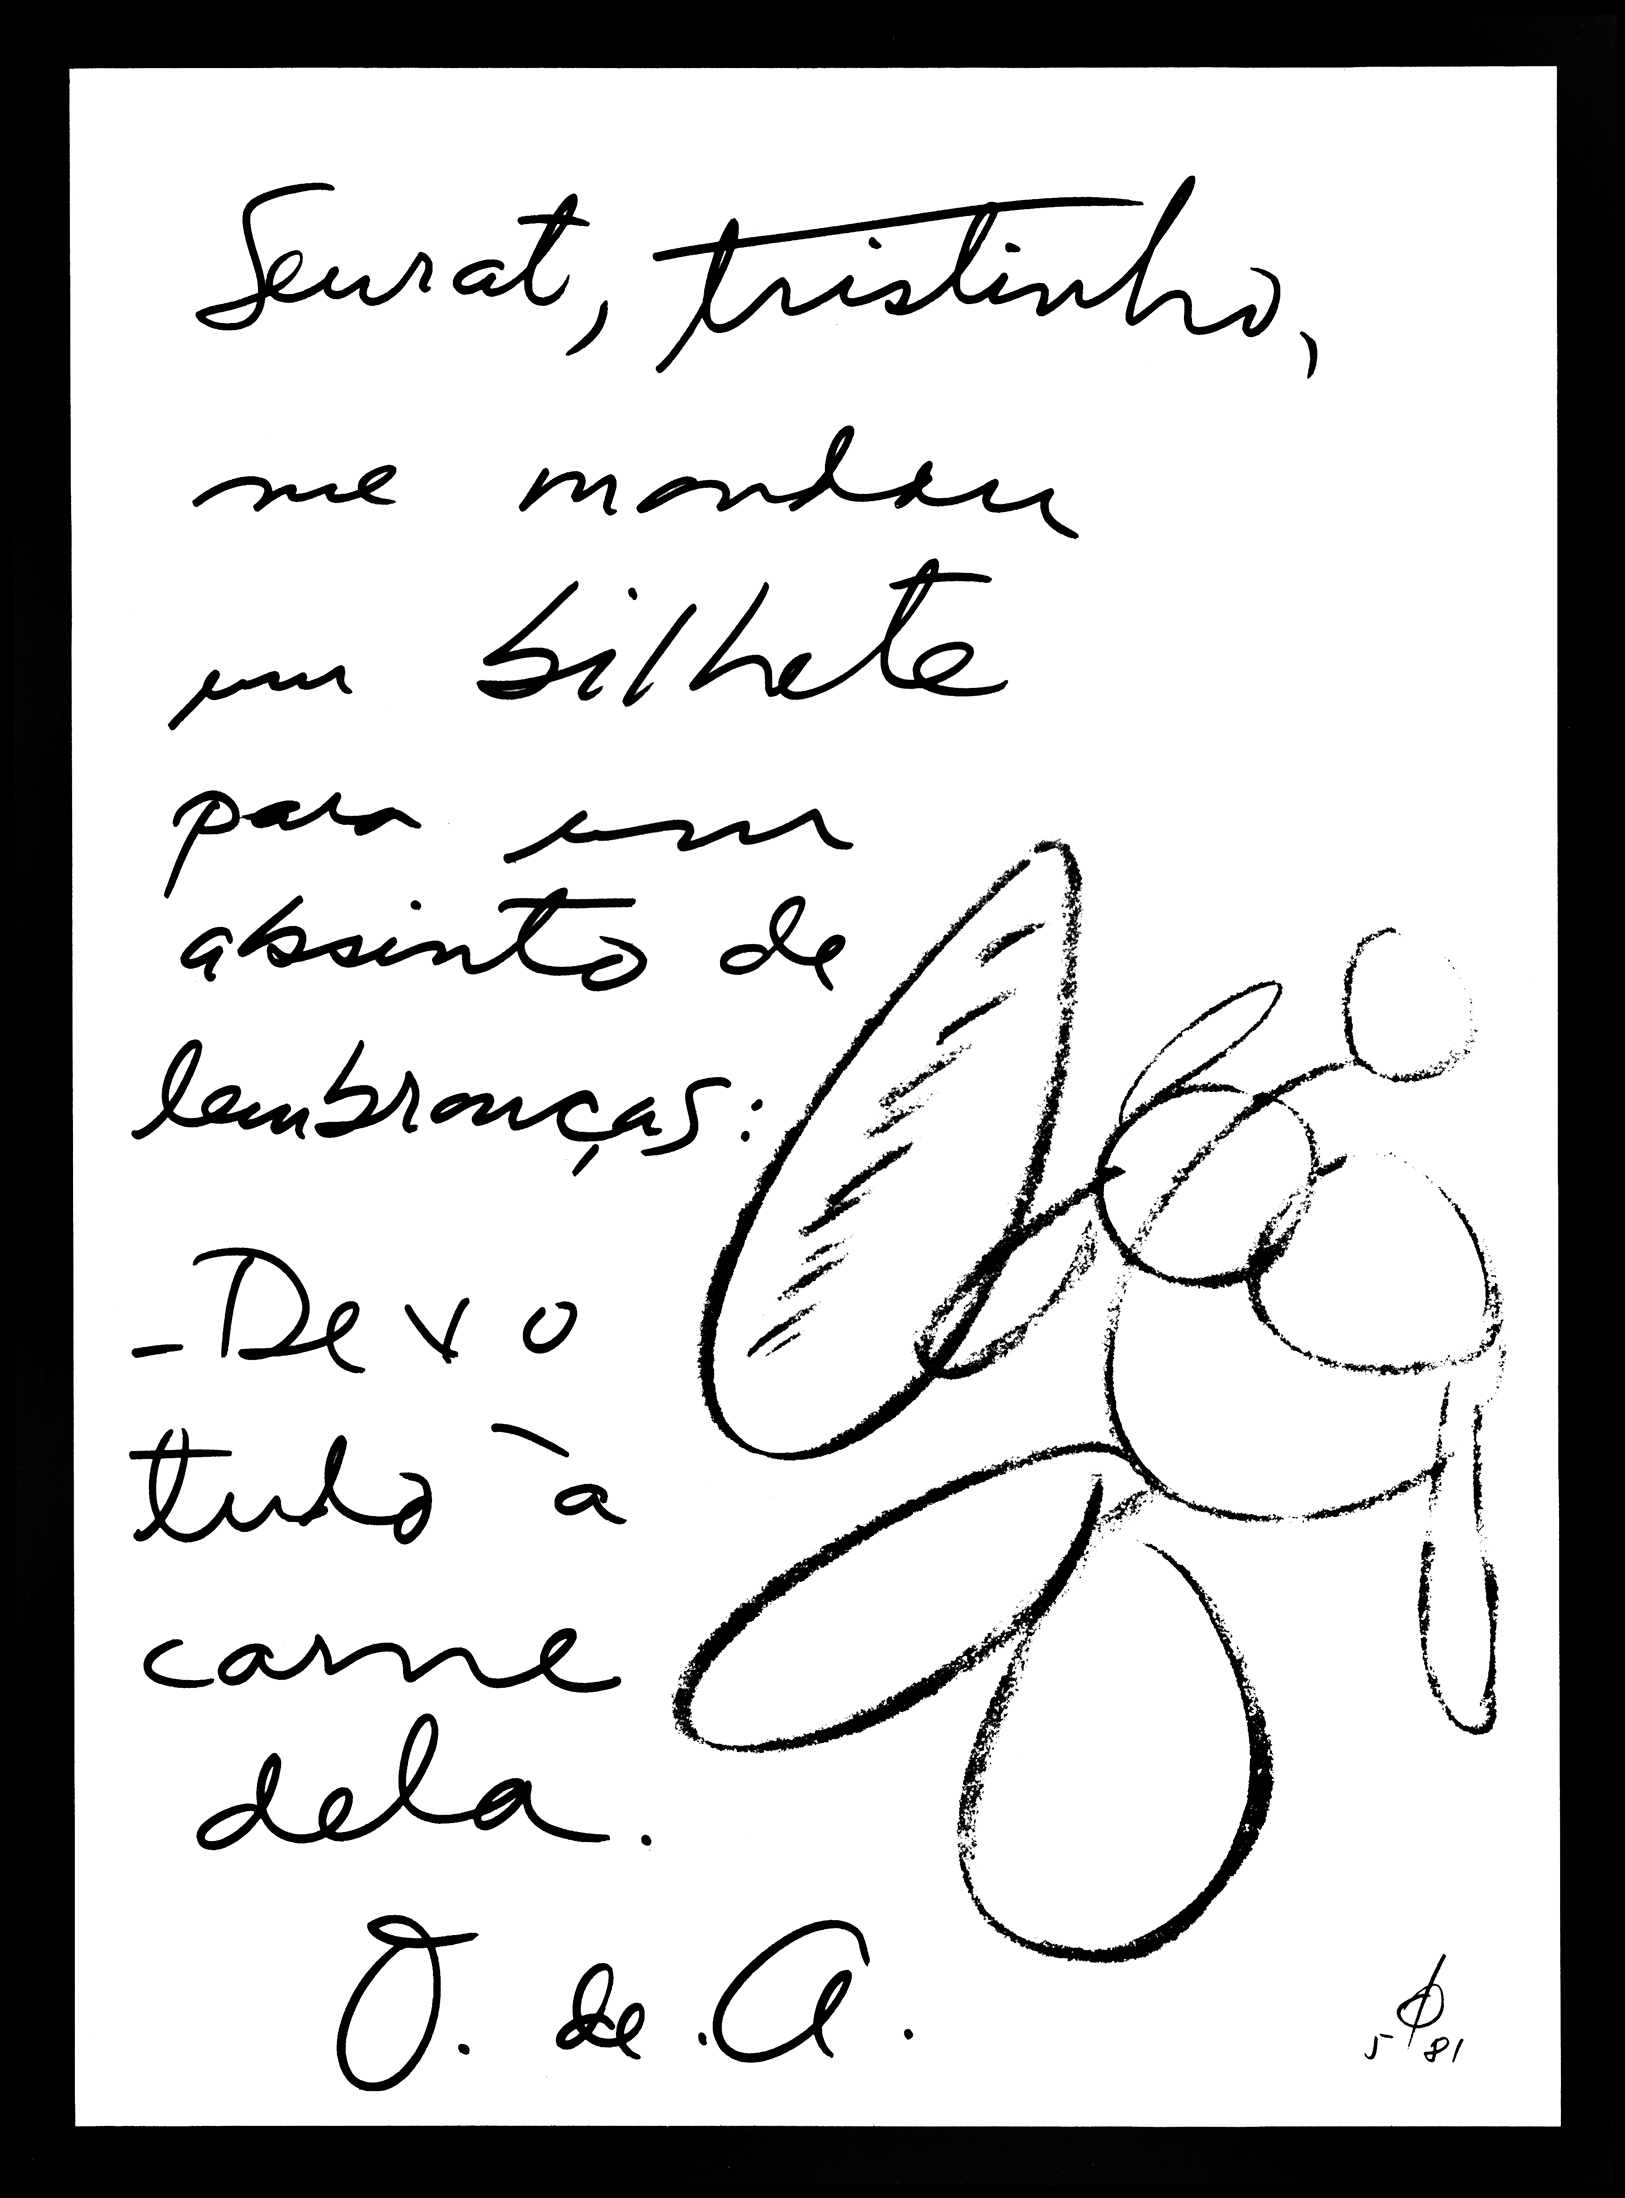 Seurat, tristinho,
me mandou
um bilhete
para um
absinto de
lembranças:
- Devo
tudo à
carne
dela.
O. de A.
5 81